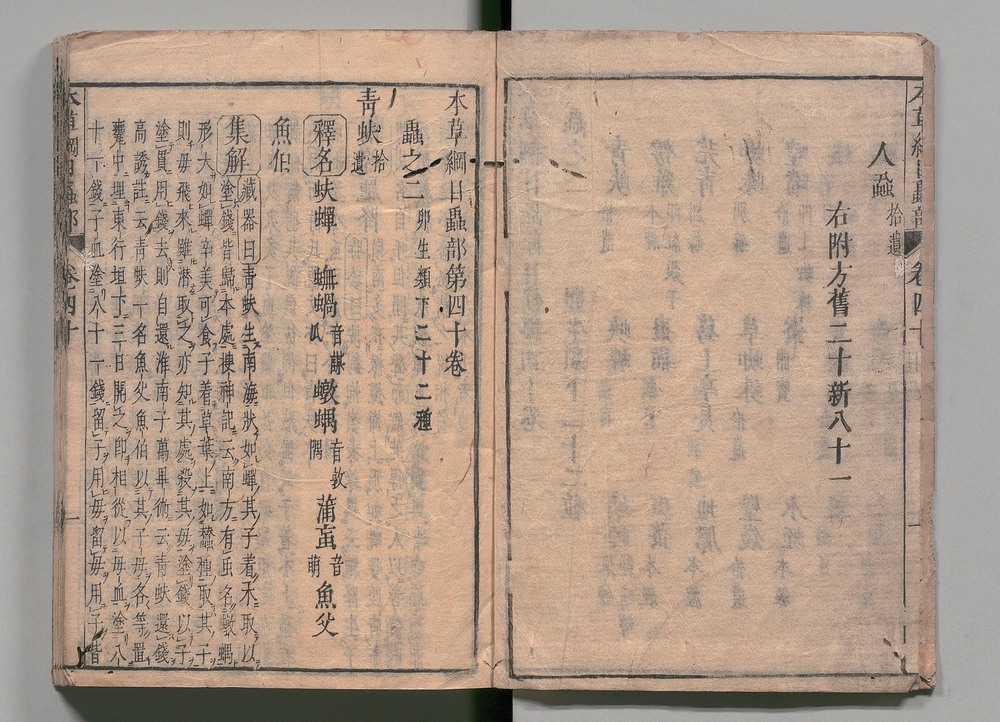 人蝨 拾遺
右附方舊二十新八十一
本草綱目蟲部 卷四十
本草綱目蟲部第四十卷
蟲之二 卵生類下二十二種
青蚨 拾遺
釋名 蚨蟬 蟱蝸 音謀瓜 蠍蝺 音敦隅 蒲䖟 音萌 魚父
魚伯
集解 藏器曰青蚨生南海狀如蟬其子着木取以
塗錢皆歸本處搜神記云南方有虫名蠍蝺
形大如蟬辛美可食子着草葉上如蠶種取其子
則母飛來雖潜取之亦知其處殺其母塗錢以子
塗貫用錢去則自還淮南子萬畢術云青蚨還錢
高誘註云青蚨一名魚父魚伯以其子母各等置
甕中埋東行垣下三日開之即相從以母血塗八
十一錢子血塗八十一錢留子用母留母用子皆
本草綱目蟲部 卷四十 一